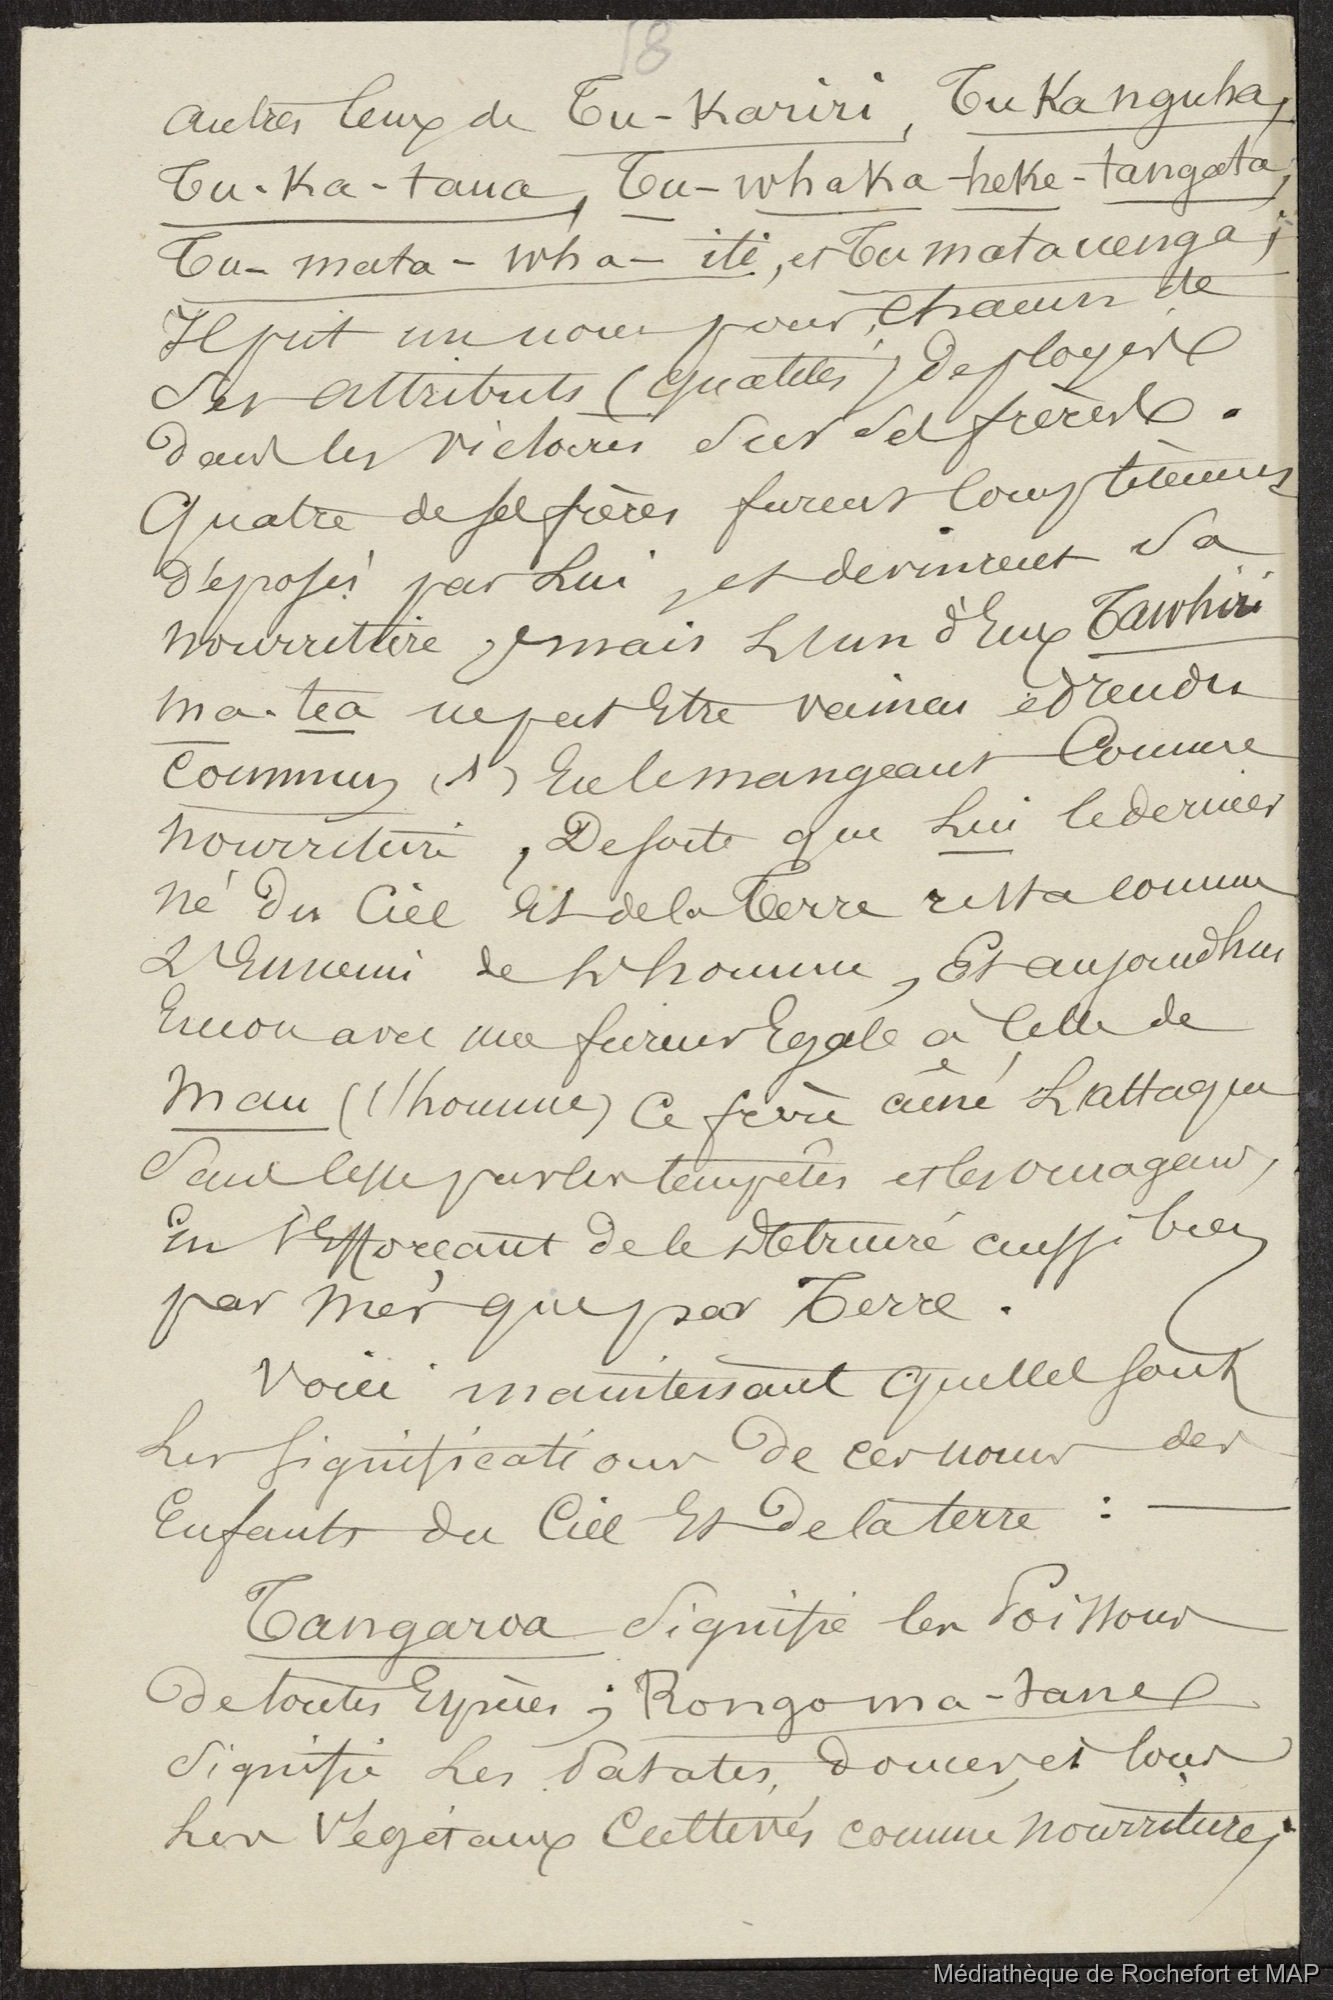 58
autres ceux de Tu-Kariri, Tu Kanguha,
Tu-Ka-taua, Tu-whaka-heke-tangata,
Tu-mata-wha-iti, et Tu matauenga;
Il prit un nom pour chacun de
ses attributs (qualités) deployés
dans les victoires sur ses frères.
Quatre de ses frères furent
déposés par Lui, et devinrent sa
nourriture, mais L'un d'Eux Tawhiri
ma-tea ne put Etre vaincu et rendu
commun (1) En le mangeant Comme
nourriture, De sorte que Lui le dernier
né du Ciel Et de la Terre resta comme
L'Ennemi de L'homme, Et aujourdhui
Encor avec une fureur Egale à Celle de
Man (l'homme) Ce frère ainé L'attaque
sans cesse par les tempêtes et les ouragans,
En s'Efforçant de le detruire aussi bien
par mer que par Terre.
Voici maintenant quelles sont
Les significations de ces noms des
Enfants du Ciel Et De la terre : —
Tangaroa signifie les Poissons
De toutes Espèces; Rongo ma-tane
signifie Les Patates, douces, et tous
Les Végétaux Cultivés comme nourriture;
Médiathèque de Rochefort et MAP